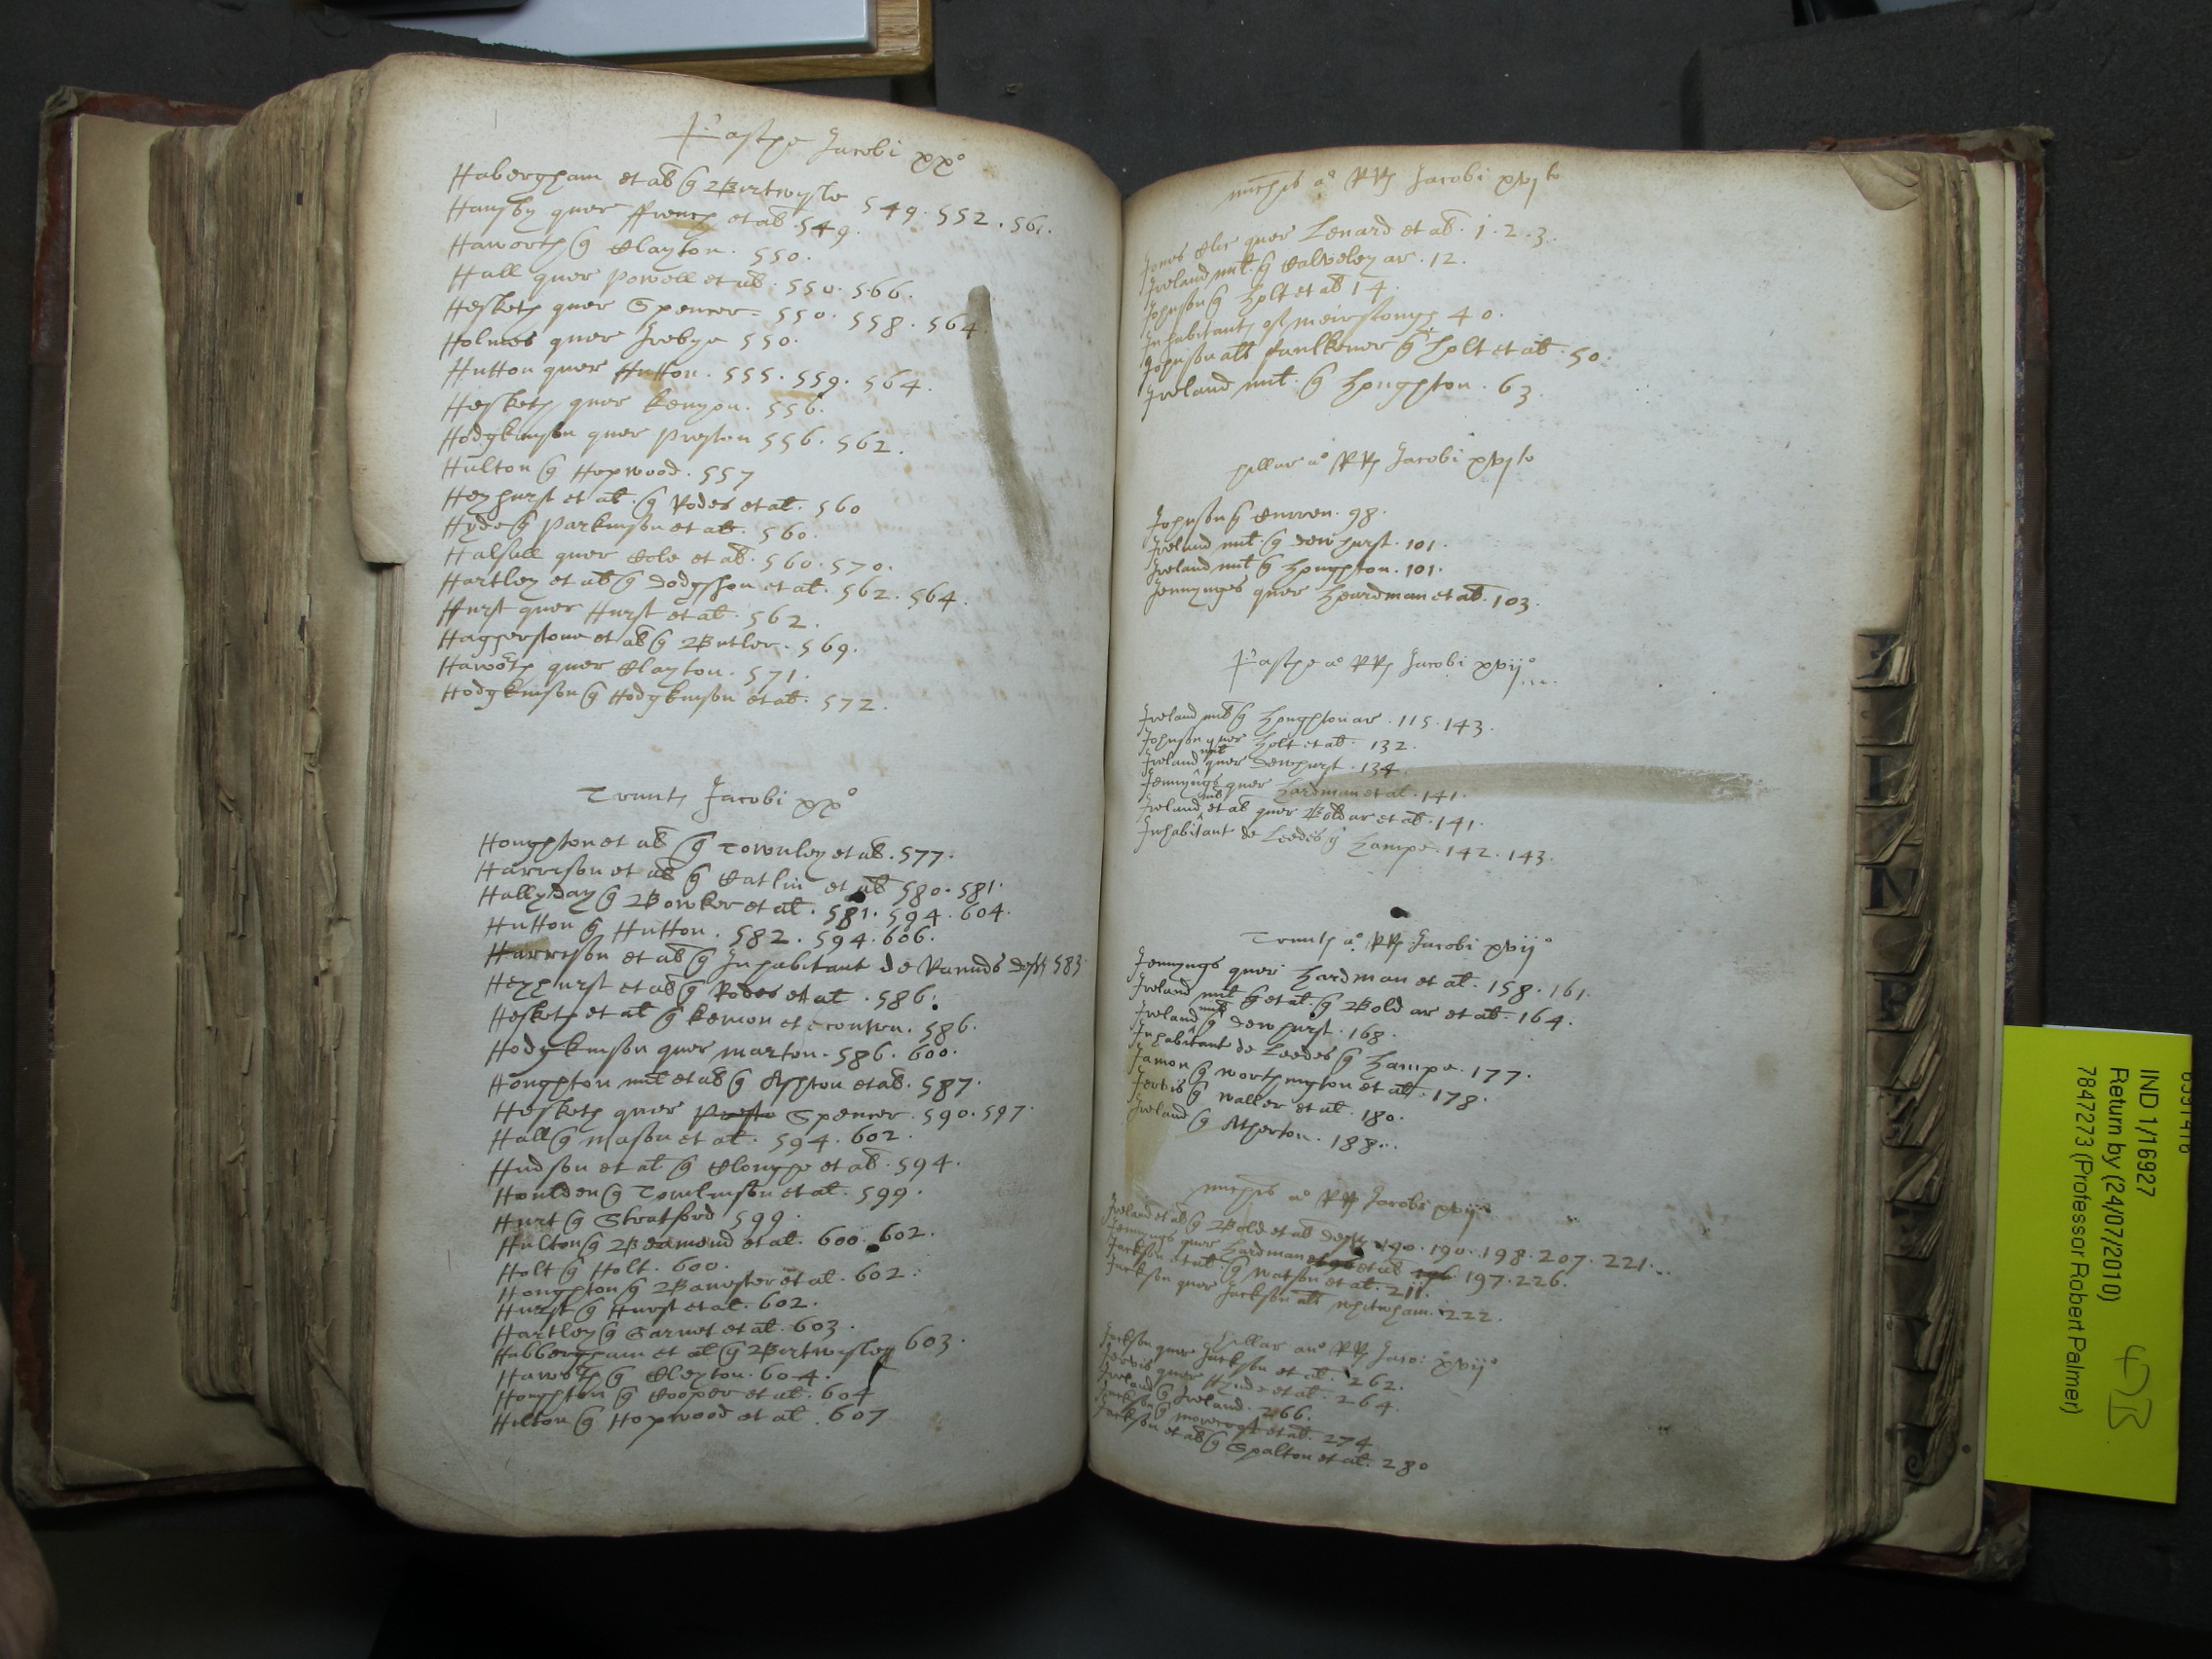 Pasche Jacobi xx°
Habergham et al q Birtwysle 549. 552. 561.
Hansby quer ffrench et al. 549.
Haworth q Clayton. 550.
Hall quer Powell et al. 550. 566.
Hesketh quer Spencer = 550. 558. 564.
Holmes quer Irebye 550.
Hutton quer Hutton. 555. 559. 564.
Hesketh quer Kenyon. 556.
Hodgkinson quer Preston 556. 562.
Hulton q Hopwood. 557
Heyhurst et al. q Rodes et al. 560
Hyde q Parkinson et al. 560.
Halsall quer Cole et al. 560. 570.
Hartley et al q Dodgshon et al. 562. 564.
Hurst quer Hurst et al. 562.
Haggerstone et al q Butler. 569.
Haworth quer Clayton. 571.
Hodgkinson q Hodgkinson et al. 572.
Trinit Jacobi xx°
Houghton et al q Townley et al. 577.
Harrison et al q Catlin et al 580. 581.
Hallyday q Bowker et al. 581. 594. 604.
Hutton q Hutton. 582. 594. 606.
Harrison et al q Inhabitant de 583
Heyhurst et al q Rodes et al. 586.
Hesketh et al q Kenion et e contra. 586.
Hodgkinson quer Marton. 586. 600.
Houghton mil et al q Ashton et al. 587.
Hesketh quer Presto Spencer. 590. 597.
Hall q Mason et al. 594. 602.
Hudson et al q Cloughe et al. 594.
Houlden q Tomlinson et al. 599.
Hurt q Stratford 599.
Hulton q Beamond et al. 600. 602.
Holt q Holt. 600.
Houghton q Banester et al. 602.
Hurst q Hurst et al. 602.
Hartley q Garnet et al. 603.
Habbergham et al q Birtwysley 603.
Haworth q Cleyton. 604.
Houghton q Cooper et al. 604
Hilton q Hopwood et al. 607
Michis a° RRs Jacobi xvjto
Jones cler quer Lenard et al. 1. 2. 3.
Ireland mil. q Calveley ar. 12.
Johnson q Holt et al 14.
Inhabitants of 40.
Johnson als Faulkener q Holt et al. 50.
Ireland mil. q Houghton. 63.
Hillar a° RRs Jacobi xvjto
Johnson q Curren. 98.
Ireland mil. q Dewhurst. 101.
Ireland mil q Houghton. 101.
Jennynges quer Heardman et al. 103.
Pasche a° RRs Jacobi xvij°
Ireland mil q Houghton ar. 115. 143.
Johnson quer Holt et al. 132.
Ireland mil quer Dewhurst. 134.
Jennyngs quer Hardman et al. 141.
Ireland mil et al quer Bold ar et al. 141.
Inhabitant de Leedes q Hampe. 142. 143.
Trinit a° RRs Jacobi xvij°
Jennyngs quer Hardman et al. 158. 161.
Ireland mil q et al. q Bold ar et al. 164.
Ireland mil q Dewhurst. 168.
Inhabitant de Leedes q Hampe. 177.
Jamon q Worthington et al. 178.
Jervis q Waller et al. 180.
Ireland q Atherton. 188..
Michis a° RRs Jacobi xvij°
Ireland et al q Bold et al 190. 190. 198. 207. 221...
Jennyngs quer Hardman et al 196 197. 226.
Jackson et al. q Watson et al. 211.
Jackson quer Jackson als Whitwham. 222.
Hillar an° RRs Jaco: xvij°
Jackson quer Jackson et al. 262.
Jervis quer Hynde et al. 264.
Ireland q Ireland. 266.
Jackson q Morecroft et al. 274
Jackson et al q Spalton et al. 280
I
L
N
P
IND 1/16927
Return by (24/07/2010)
7847273 (Professor Robert Palmer)